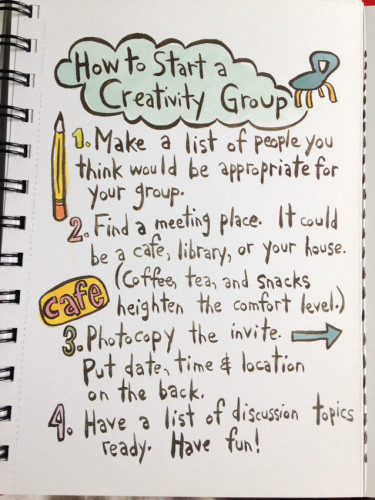 How to Start a
Creativity Group
1. Make a list of people you
think would be appropriate for
your group.
2. Find a meeting place. It could
be a cafe, library, or your house.
(Coffee, tea, and snacks
cafe
heighten the comfort level.)
3. Photocopy the invite.
Put date, time & location
on the back.
4. Have a list of discussion topics
ready. Have fun!